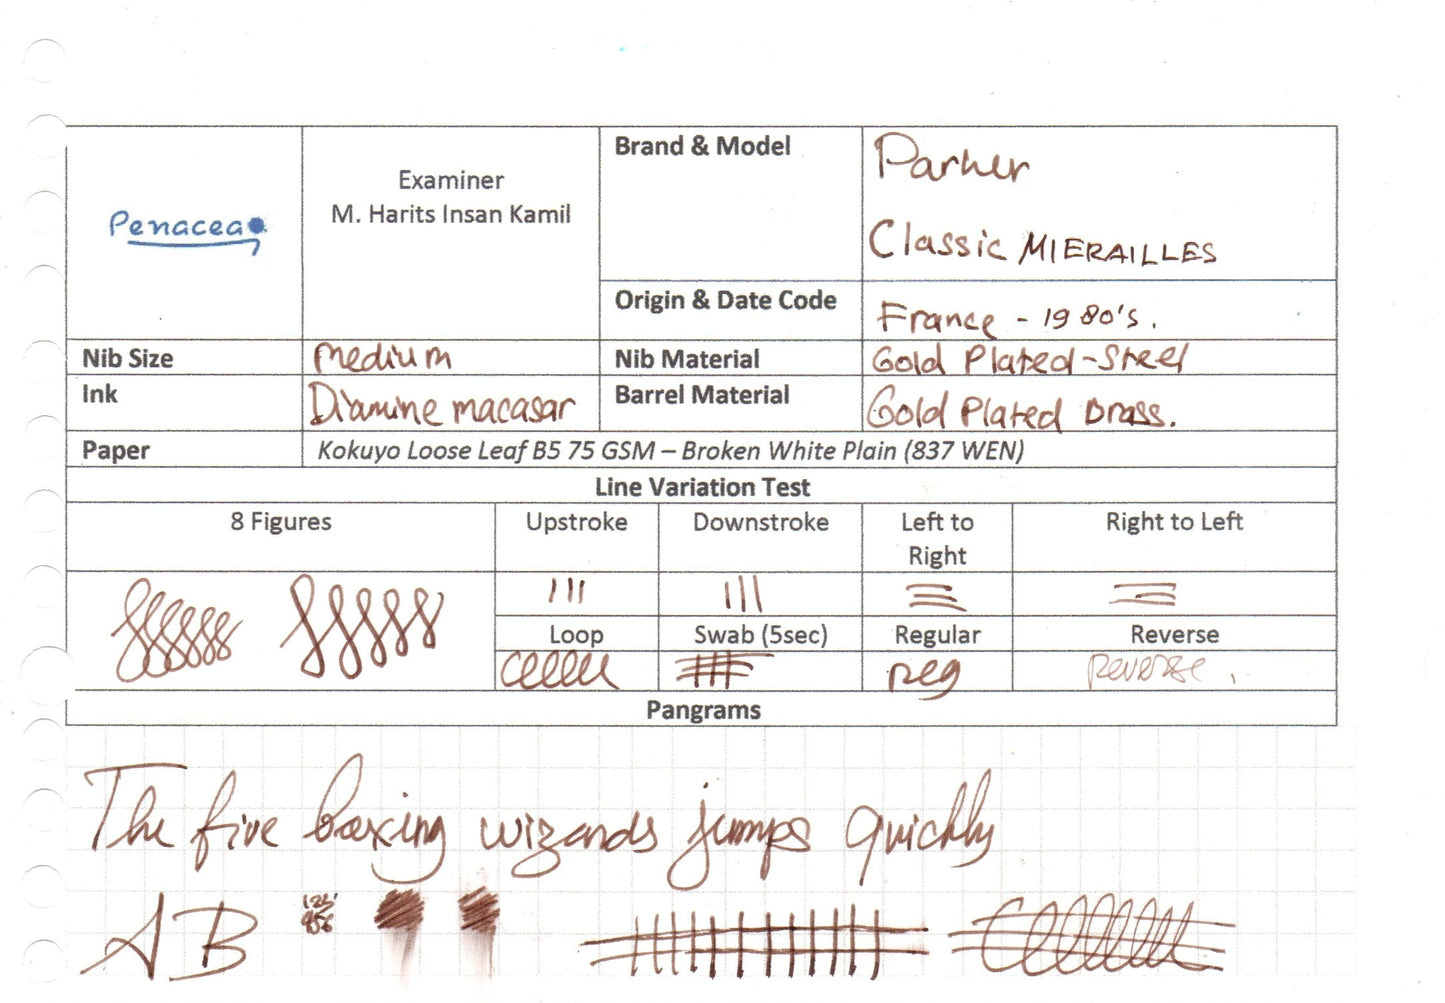 Penacea
Examiner
M. Harits Insan Kamil
Brand & Model
Parker
Classic MIERAILLES
Origin & Date Code
France - 1980's.
Nib Size
medium
Nib Material
Gold Plated-Steel
Ink
Diamine macasar
Barrel Material
Gold Plated Brass.
Paper
Kokuyo Loose Leaf B5 75 GSM – Broken White Plain (837 WEN)
Line Variation Test
8 Figures
Upstroke
Downstroke
Left to
Right
Right to Left
Loop
Swab (5sec)
Regular
Reverse
reg
Reverse.
Pangrams
The five boxing wizards jumps quickly
A B
123
456